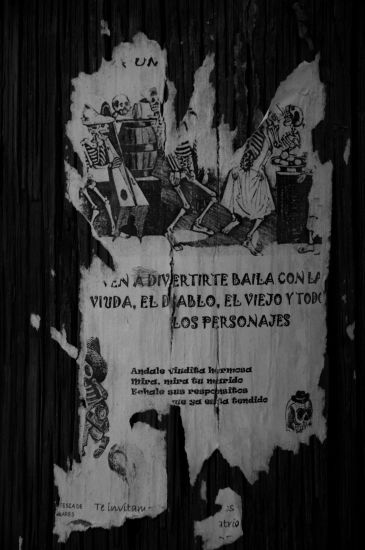 UN
VEN A DIVERTIRTE BAILA CON LA
VIUDA, EL DIABLO, EL VIEJO Y TODO
LOS PERSONAJES
Andale viudita hermosa
Mira, mira tu marido
Echale sus responsitos
que ya esta tendido
TESCA DE
Te invitan
atrio